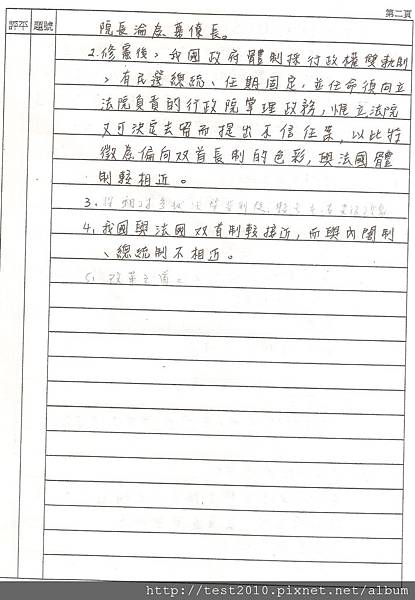 第二頁
評平 題號
院長淪為幕僚長。
2.修憲後,我國政府體制採行政權雙軌制
,有民選總統、任期固定,並任命須向立
法院負責的行政院掌理政務,惟立法院
又可決定去留而提出不信任案,以此特
徵為偏向双首長制的色彩,與法國體
制較相近。
3.
4.我國與法國双首制較接近,而與內閣制
、總統制不相近。
5.改革之道:
http://test2010.pixnet.net/album